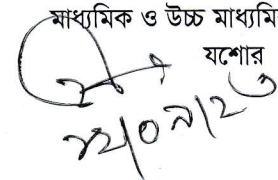 মাধ্যমিক ও উচ্চ মাধ্যমি
যশোর